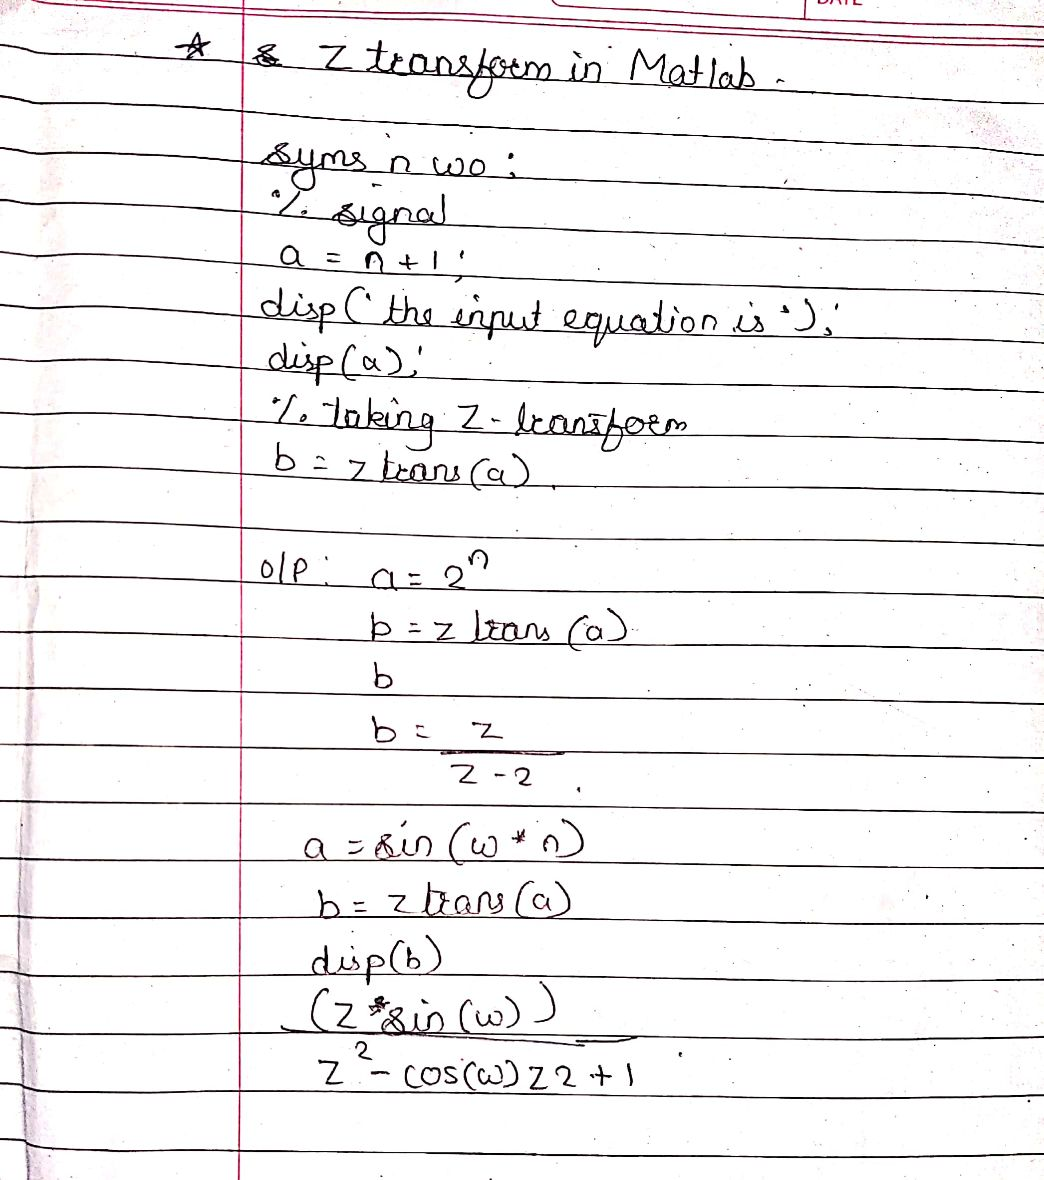 DATE
☆ Z transform in Matlab.
syms n wo ;
% signal
a = n + 1 ;
disp (' the input equation is ') ;
disp (a) ;
% Taking Z - transform
b = z trans (a) .
O/P : a = 2^n
b = z trans (a)
b
b = z
z - 2 .
a = sin (w * n)
b = z trans (a)
disp (b)
(z * sin (w))
z^2 - cos(w) z 2 + 1